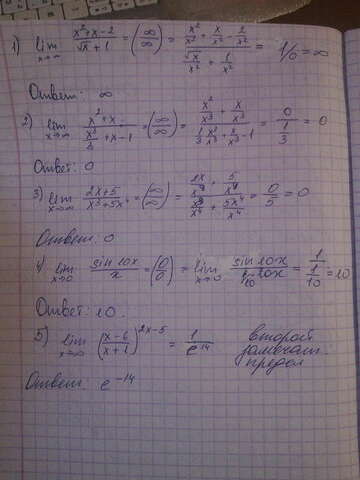 1) lim x→∞ (x²+x-2)/(√x+1) = (∞/∞) = (x²/x² + x/x² - 2/x²)/(√x/x² + 1/x²) = 1/0 = ∞
Ответ: ∞
2) lim x→∞ (x²+x)/(x³/3+x-1) = (∞/∞) = (x²/x³ + x/x³)/(1/3 x³/x³ + x/x³ - 1) = 0/(1/3) = 0
Ответ: 0
3) lim x→∞ (2x+5)/(x³+5x⁴) = (∞/∞) = (2x/x⁴ + 5/x⁴)/(x³/x⁴ + 5x⁴/x⁴) = 0/5 = 0
Ответ: 0
4) lim x→0 sin10x/x = (0/0) = lim x→0 sin10x/(1/10 · 10x) = 1/(1/10) = 10
Ответ: 10.
5) lim x→∞ ((x-6)/(x+1))^(2x-5) = 1/e^14 второй
замечат.
предел
Ответ: e^-14